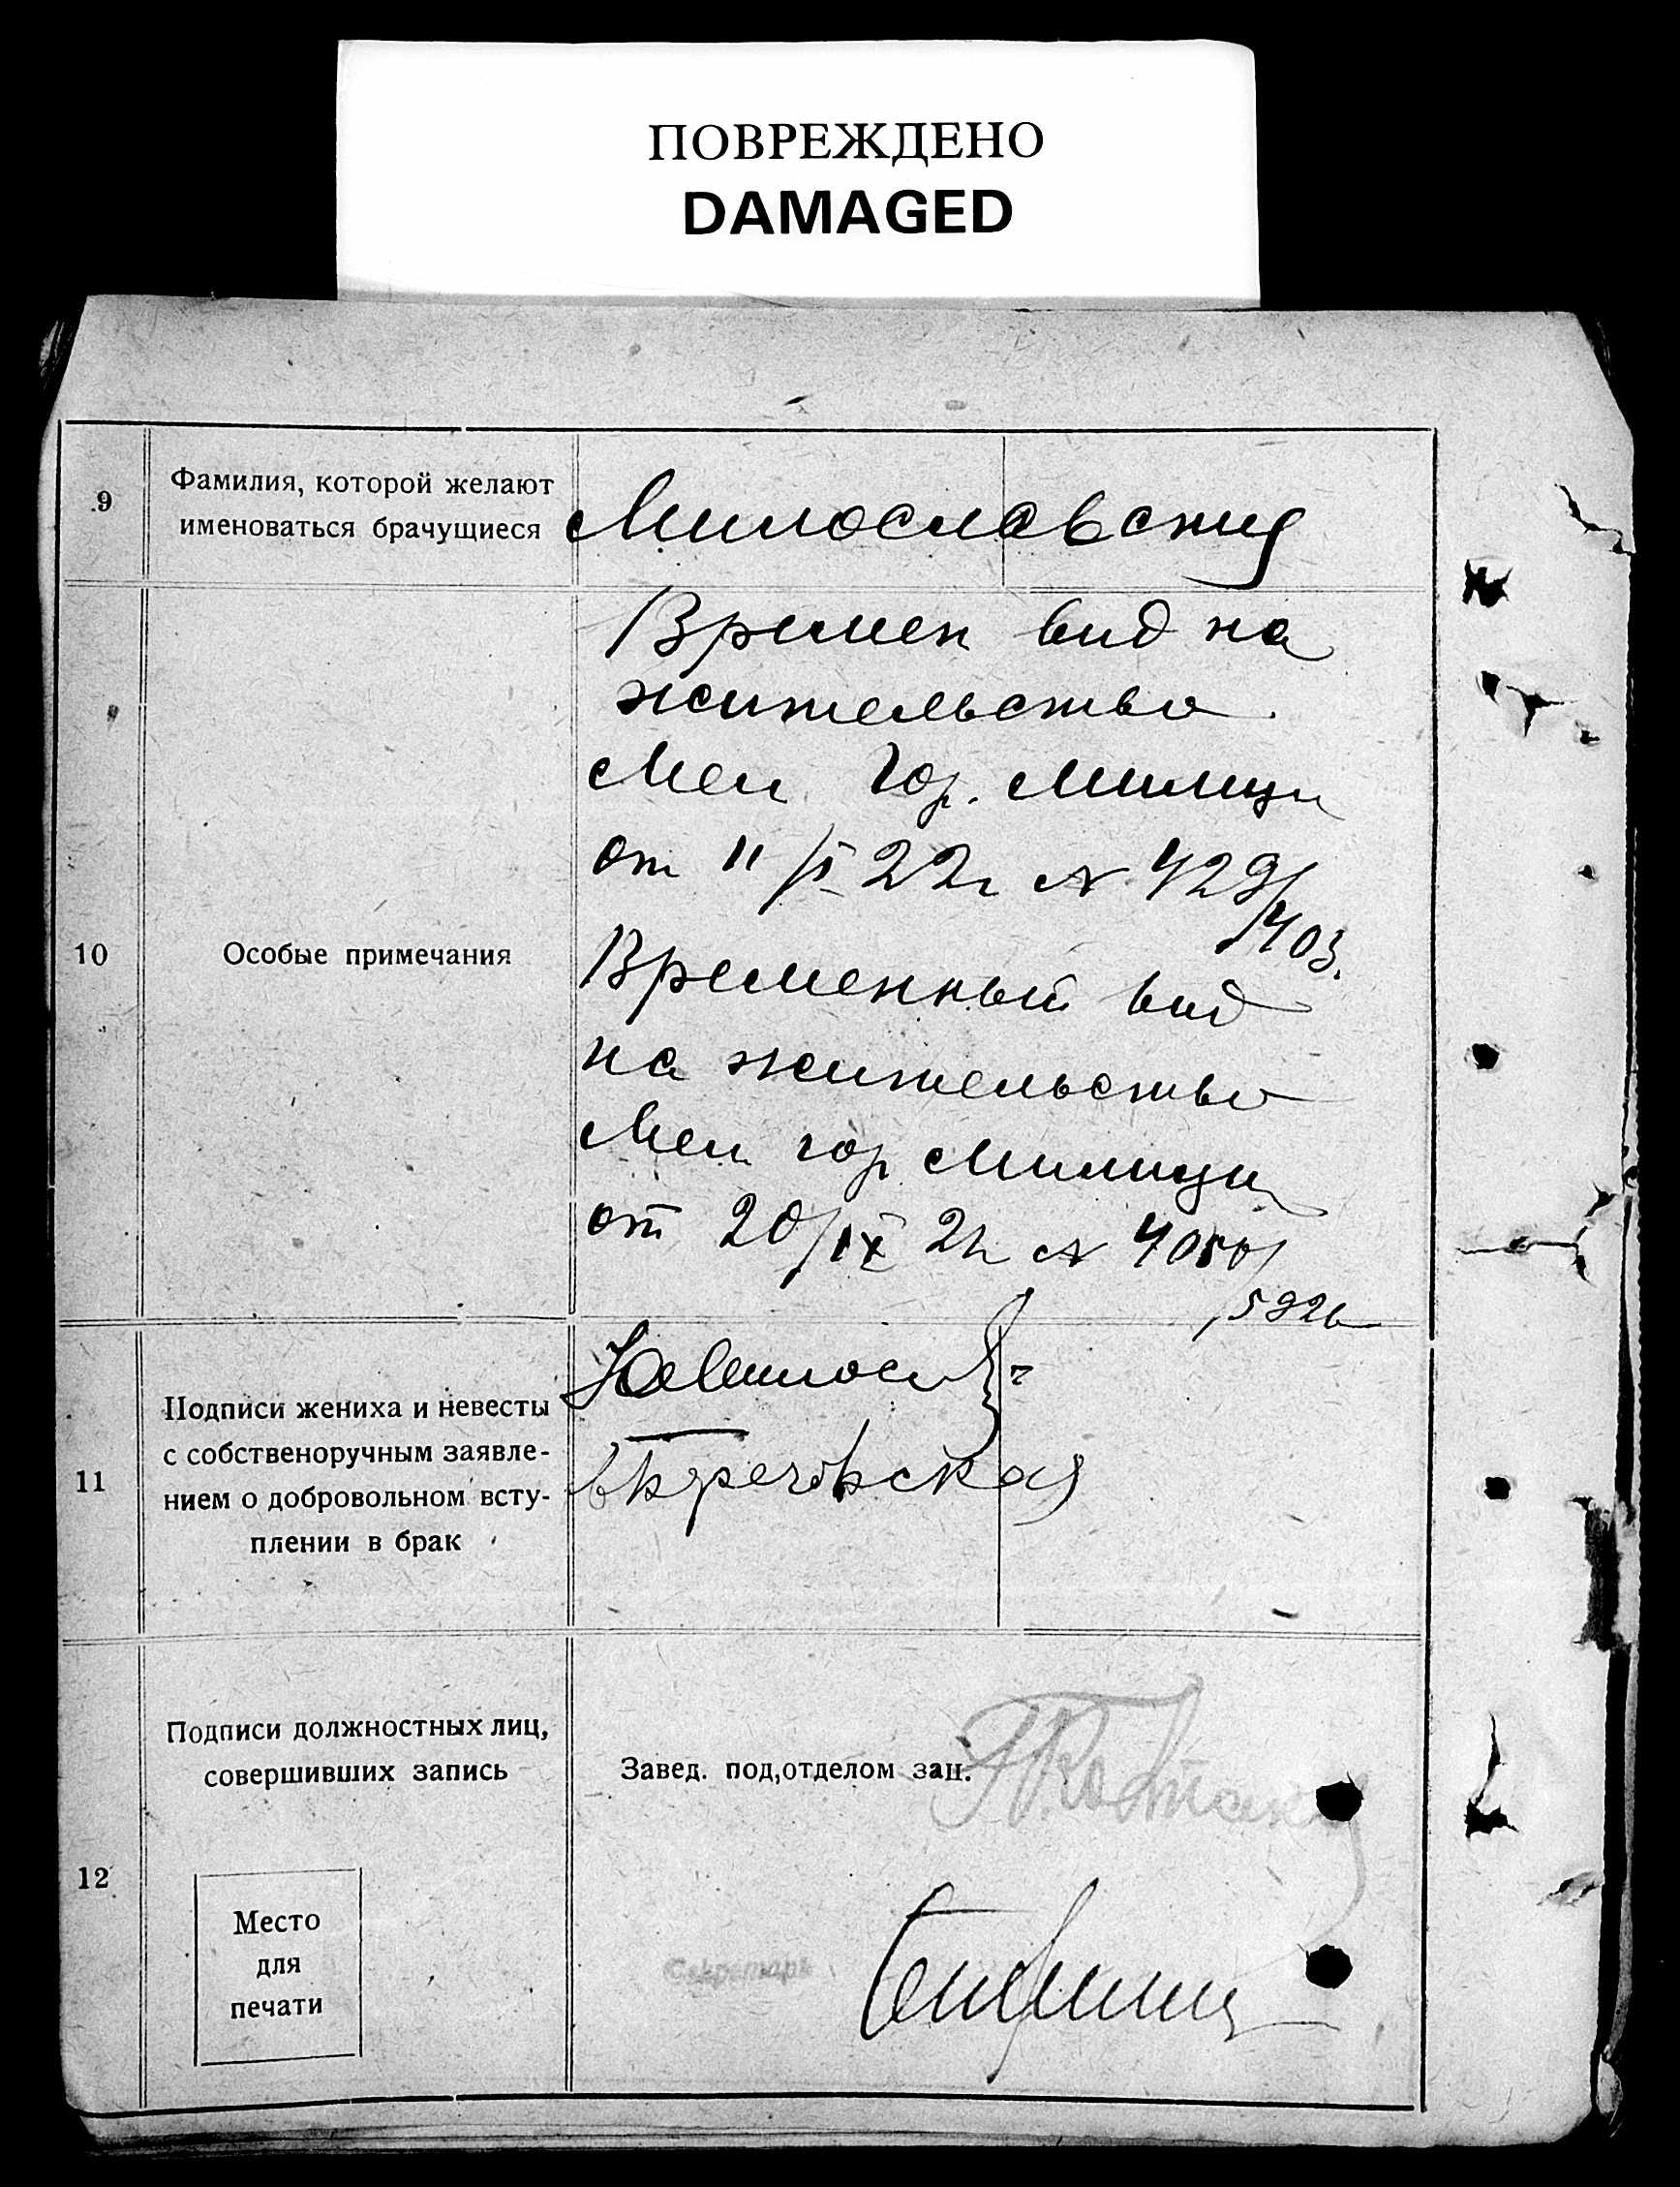 ПОВРЕЖДЕНО
DAMAGED
9
Фамилия, которой желают
именоваться брачущиеся
Милославские
10
Особые примечания
Времен вид на
жительство
Мел Гор. Милиции
от 11/I 22г N 429/
1403.
Временный вид
на жительство
Мел гор Милиции
от 20/IX 21г N
11
Подписи жениха и невесты
с собственоручным заявле-
нием о добровольном всту-
плении в брак
12
Подписи должностных лиц,
совершивших запись
Завед. под,отделом зап.
Секретарь
Место
для
печати